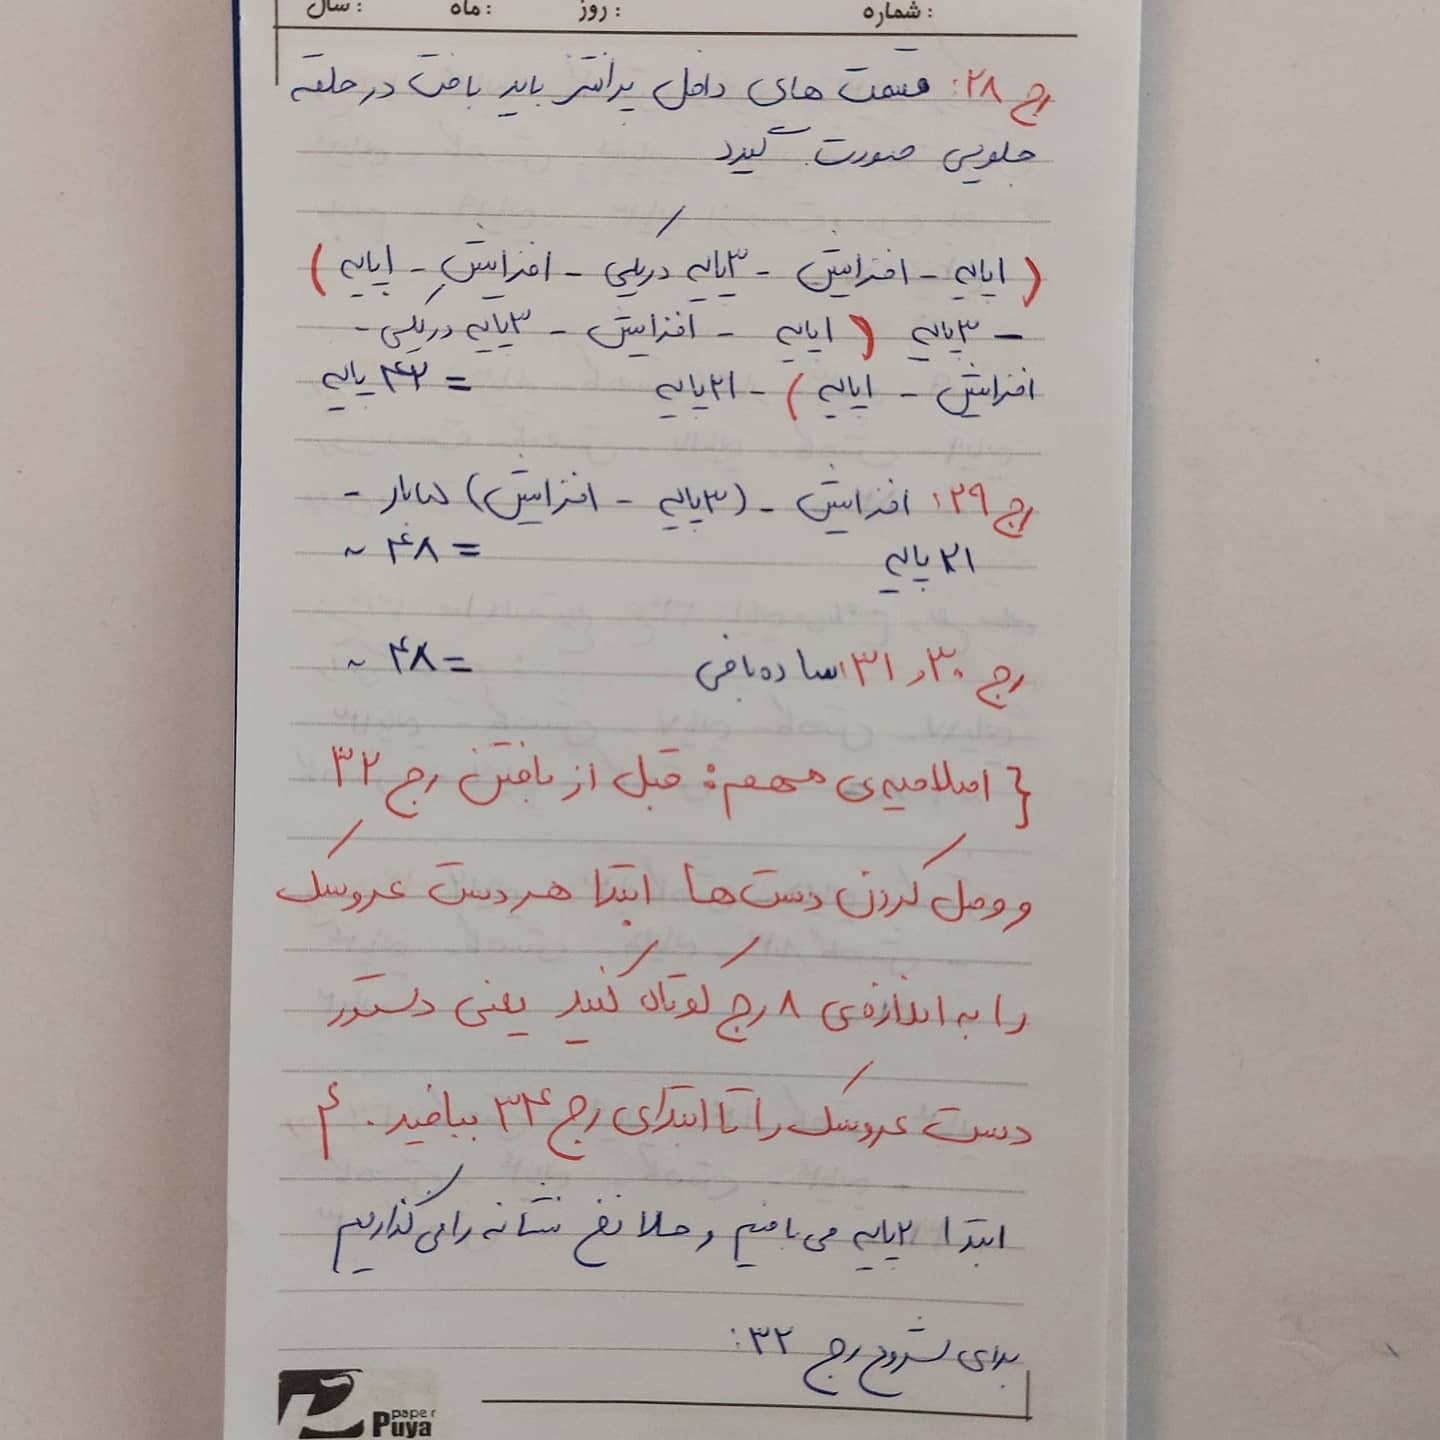 شماره :    روز :    ماه :    سال :
رج ۲۸: قسمت های داخل پرانتز باید بافت در حلقه
جلویی صورت گیرد
(۱پایه - افزایش - ۳پایه دریکی - افزایش - ۱پایه)
- ۳پایه (۱پایه - افزایش - ۳پایه دریکی -
افزایش - ۱پایه) - ۲۱پایه = ۴۲پایه
رج ۲۹: افزایش - (۳پایه - افزایش) ۵بار -
۲۱پایه = ۴۸ ~
رج ۳۰ و ۳۱: ساده بافی = ۴۸ ~
{ اصلاحیه‌ی مهم: قبل از بافتن رج ۳۲
و وصل کردن دست ها ابتدا هر دست عروسک
را به اندازه‌ی ۸ رج کوتاه کنید یعنی دستور
دست عروسک را تا ابتدای رج ۳۴ ببافید. }
ابتدا ۲پایه می بافیم و حلا نخ نشانه را می گذاریم
برای شروع رج ۳۲:
paper
Puya